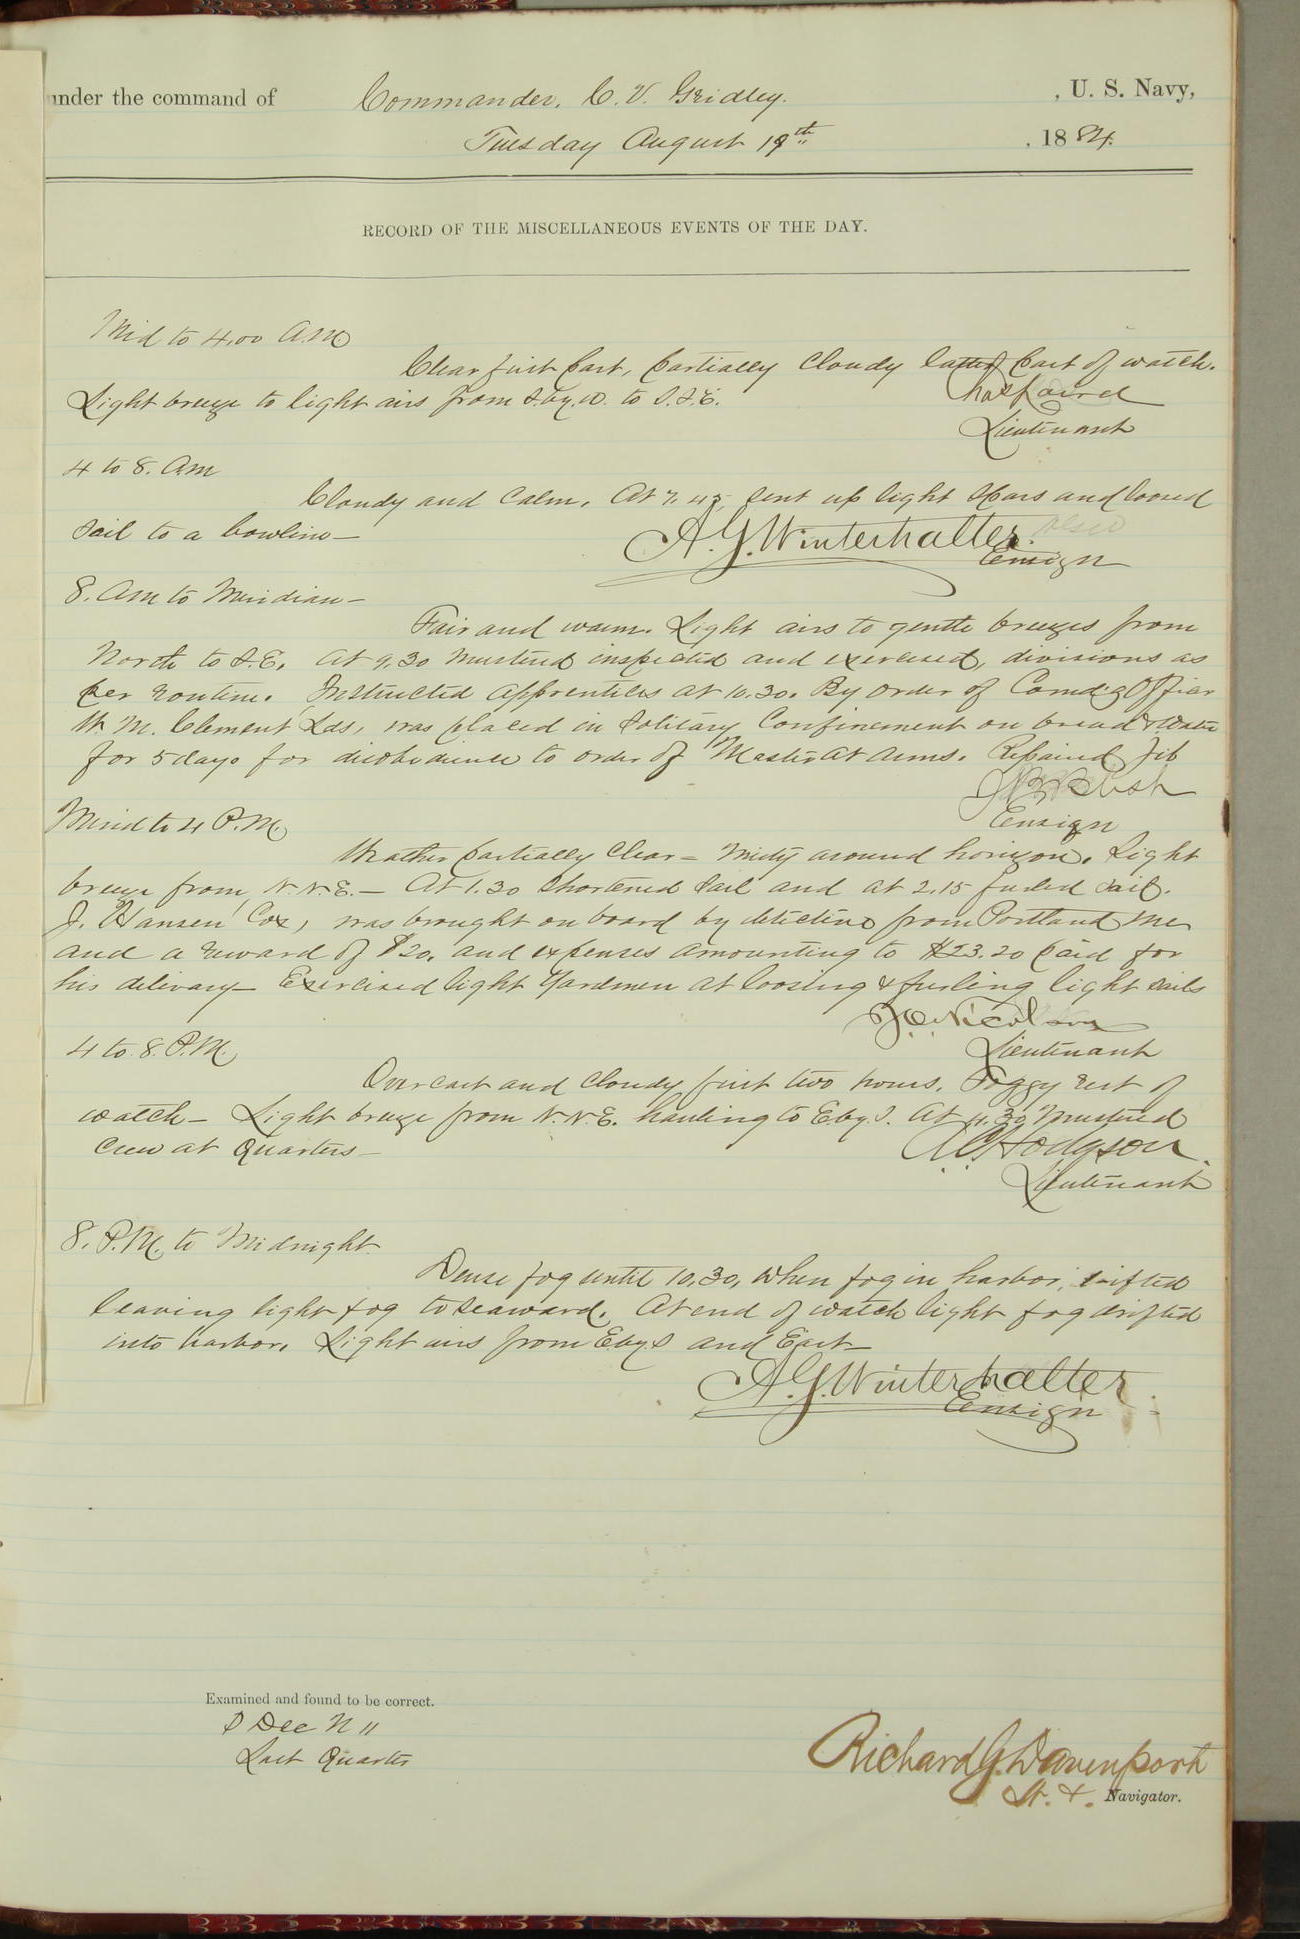 under the command of Commander, C. V. Gridley. , U. S. Navy,
Tuesday August 19th , 1884.
RECORD OF THE MISCELLANEOUS EVENTS OF THE DAY.
Mid to 4.00 A.M
Clear first part, partially cloudy latter part of watch.
Light breeze to light airs from S. by. W. to S.S.E.
Lieutenant
4 to 8. Am
Cloudy and calm. At 7.45 sent up light spars and loosed
sail to a bowline—
A. G. Winterhalter.
Ensign
8. Am to Meridian—
Fair and warm. Light airs to gentle breezes from
North to S.E. At 9.30 mustered inspected and exercised, divisions as
per routine. Instructed apprentices at 10.30. By order of Comd'g Officer
W. M. Clement Lds, was placed in solitary confinement on bread & water
for 5 days for disobedience to order of Master at arms. Repaired Jib
Ensign
Merid to 4 P.M.
Weather partially clear— misty around horizon. Light
breeze from N.N.E.— At 1.30 shortened sail and at 2.15 furled sail.
J. Hansen Cox, was brought on board by detective from Portland Me
and a reward of $20. and expenses amounting to $23.20 paid for
his delivary— Exercised light yardmen at loosing & furling light sails
Lieutenant
4 to 8. P.M.
Overcast and cloudy first two hours. Foggy rest of
watch— Light breeze from N.N.E. hauling to E by. S. At 4.30 mustered
crew at Quarters—
A C Hodgson.
Lieutenant
8. P.M. to Midnight.
Dense fog until 10.30, when fog in harbor, lifted
leaving light fog to seaward. At end of watch light fog drifted
into harbor. Light airs from E by S and East—
A. G. Winterhalter.
Ensign
Examined and found to be correct.
Dec N 11
Last Quarter
Richard G. Davenport
Lt. & Navigator.